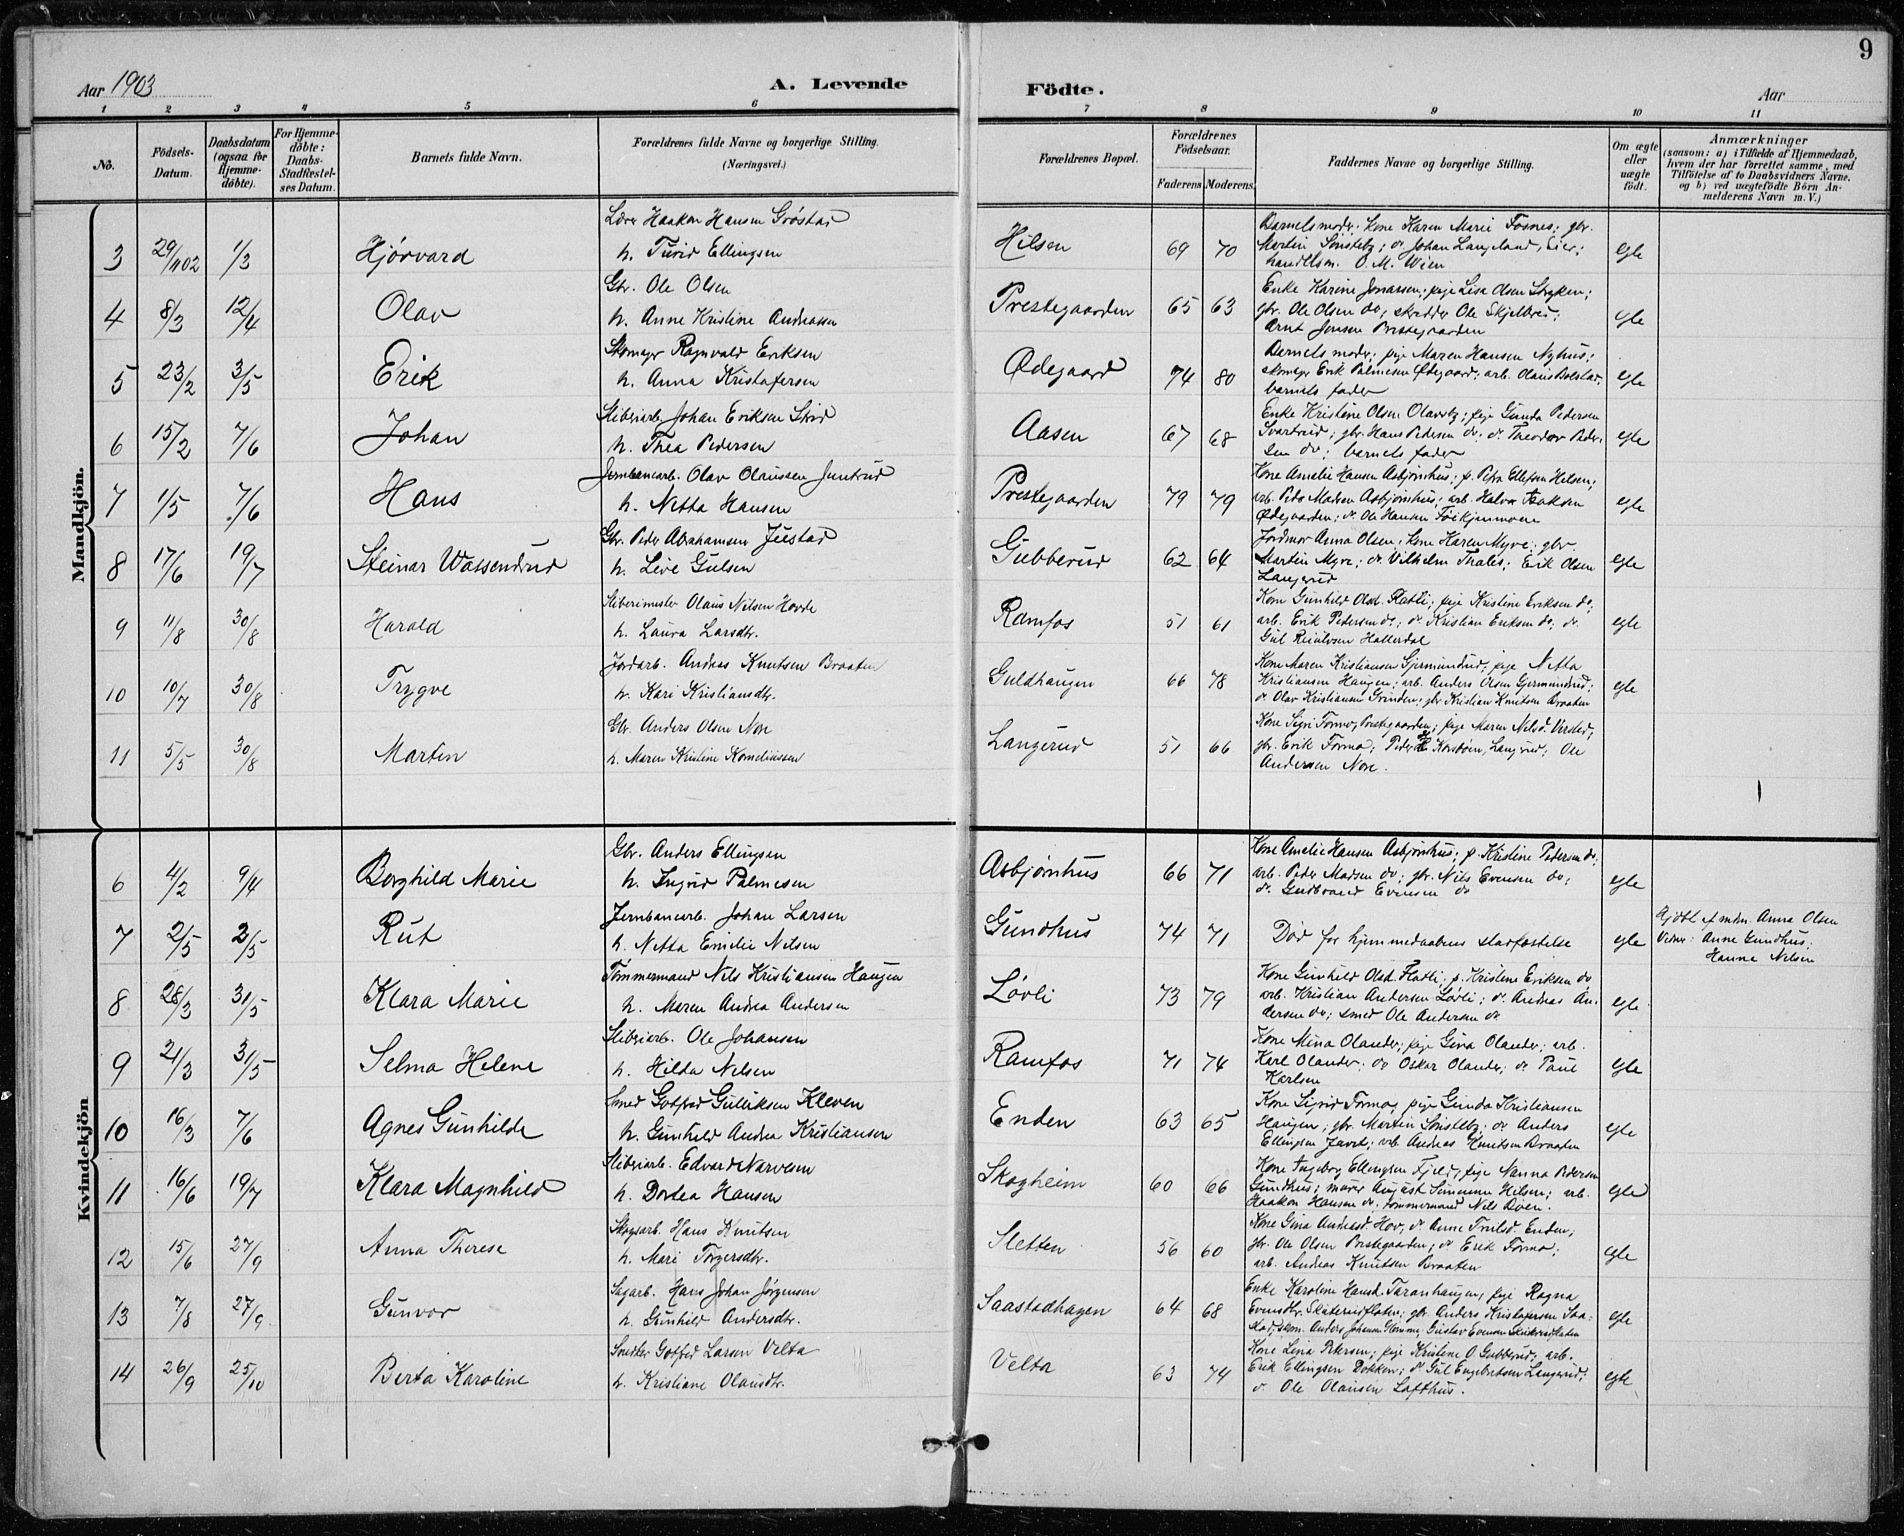 9
Aar 1903
A. Levende
Födte.
Aar
1 2 3 4 5 6 7 8 9 10 11
Nô.
Födsels-Datum.
Daabsdatum (ogsaa for Hjemme-döbte).
For Hjemme-döbte: Daabs-Stadfæstel-ses Datum.
Barnets fulde Navn.
Forældrenes fulde Navne og borgerlige Stilling. (Næringsvei.)
Forældrenes Bopæl.
Forældrenes Födselsaar.
Faderens Moderens.
Faddernes Navne og borgerlige Stilling.
Om ægte eller uægte födt.
Anmærkninger
(saasom: a) i Tilfælde af Hjemmedaab,
hvem der har forrettet samme, med
Tilföielse af to Daabsvidners Navne,
og b) ved uægtefödte Börn An-
melderens Navn m. V.)
Mandkjön.
3 29/11 02 1/3 Hjørvard
Lærer Haakon Hansen Grøstad
h. Turid Ellingsen
Hilsen 69 70
Barnets moder; kone Karen Marie Fosnes; gbr.
Martin Sønsteby; do Johan Langeland, Eier;
handelsm. O. M. Wien
egte
4 8/3 12/4 Olav
Gbr. Ole Olsen
h. Anne Kristine Andreassen
Prestegaarden 65 63
Enke Karine Jonassen; pige Lisa Olsen Stryken;
gbr. Ole Olsen do; skrædder Ole Skjelbred;
Arnt Jensen Prestegaarden
egte
5 23/2 3/5 Erik
Skomager Ragnvald Eriksen
h. Anna Kristofersen
Ødegaard 74 80
Barnets moder; pige Maren Hansen Nyhus;
skomager Erik Palmesen Ødegaard; arb. Olaus Bolstad;
barnets fader
egte
6 15/2 7/6 Johan
Sliberiarb. Johan Eriksen
h. Thea Pedersen
Aasen 67 68
Enke Kristine Olsen Olavsby; pige Gunda Pedersen
Svartrud; gbr. Hans Pedersen do; do Theodor Peder-
sen do; barnets fader
egte
7 1/5 7/6 Hans
Jernbanearb. Olav Olaussen
h. Netta Hansen
Prestegaarden 79 79
Kone Amelie Hansen Asbjørnhus; p. Petra Ellefsen Helsen;
arb. Peder Madsen Asbjørnhus; arb. Halvor Isaksen
Ødegaarden; do Ole Hansen
egte
8 17/6 19/7 Steinar Wassendrud
Gbr. Peder Abrahamsen
h. Live Gulsen
Gubberud 62 64
Jordmor Anna Olsen; kone Karen Myre; gbr.
Martin Myre; do Vilhelm Thales; Erik Olsen
Langerud
egte
9 11/8 30/8 Harald
Sliberimester Olaus Nilsen Hovde
h. Laura Larsdtr.
Ramfos 51 61
Kone Gunhild Olsd. Flatli; pige Kristine Eriksen do;
arb. Erik Pedersen do; do Kristian Eriksen do; do
Gul Hallerdal
egte
10 10/7 30/8 Trygve
Jordarb. Andreas Knutsen Braaten
h. Kari Kristiansdtr.
Guldhaugen 66 78
Kone Maren Kristiansen Gjermundrud; pige Netta
Kristiansen Haugen; arb. Anders Olsen Gjermundrud;
do Olav Kristiansen Grinden; gbr Kristian Knutsen Braaten
egte
11 5/5 30/8 Martin
Gbr. Anders Olsen Nore
h. Maren Kristine Korneliussen
Langerud 51 66
Kone Sigri Formo, Prestegaarden; pige Maren Nilsd.
gbr. Erik Formo; Peder Langerud; Ole
Andersen Nore.
Kvindekjön
6 4/2 9/4 Borghild Marie
Gbr. Anders Ellingsen
h. Ingrid Palmesen
Asbjørnhus 66 71
Kone Amelie Hansen Asbjørnhus; p. Kristine Pedersen do;
arb. Peder Madsen do; gbr. Nils Evensen do;
do Gudbrand Evensen do
egte
7 2/5 2/5 Rut
Jernbanearb. Johan Larsen
h. Netta Emelie Nilsen
Gundhus 74 71
Død før hjemmedaabens stadfæstelse
egte
Hjdøbt af mdm. Anna Olsen
Vidner: Anne Gundhus;
Hanne Nilsen
8 28/3 31/5 Klara Marie
Tømmermand Nils Kristiansen Haugen
h. Maren Andrea Andersen
Løvli 73 79
Kone Gunhild Olsd. Flatli; p. Kristine Eriksen do
arb. Kristian Andersen Løvli; do Andreas An-
dersen do; smed Ole Andersen do
egte
9 21/3 31/5 Selma Helene
Sliberiarb. Ole Johansen
h. Hilda Nilsen
Ramfos 71 74
Kone Mina Olander; pige Gina Olander; arb.
Karl Olander; do Oskar Olander; do Paul
Karlsen
egte
10 16/3 7/6 Agnes Gunhilde
Smed Gotfred Gulliksen Kleven
h. Gunhild Andrea Kristiansen
Enden 63 65
Kone Sigrid Formo; pige Gunda Kristiansen
Haugen; gbr. Martin Sønsteby; do Anders
Ellingsen; arb. Andreas Knutsen Braaten
egte
11 16/6 19/7 Klara Magnhild
Sliberiarb. Edvard Narvesen
h. Dortea Hansen
Skogheim 60 66
Kone Ingeborg Ellingsen Fjeld; pige Nanna Pedersen
Gundhus; murer August Simensen Hilsen; arb.
Haakon Hansen do; tømmermand Nils
egte
12 15/6 27/9 Anna Therese
Skogsarb. Hans Knutsen
h. Mari Torgersdtr.
Sletten 56 60
Kone Gina Andreasd. Hov; do Anne Trulsd. Enden;
gbr. Ole Olsen Prestegaarden; do Erik Formo;
arb. Andreas Knutsen Braaten
egte
13 7/8 27/9 Gunvor
Sagarb. Hans Johan Jørgensen
h. Gunhild Andersdtr.
Saastadhagen 64 68
Enke Karoline Hansd. Taranhaugen; pige Ragna
Evensdtr. Skaterudflaten; gbr. Anders Kristofersen Saa-
stad; Anders Johansen Glomme; Gustav Evensen
egte
14 26/9 25/10 Berta Karoline
Snedker Gotfred Larsen Velta
h. Kristiane Olausdtr.
Velta 63 74
Kone Lina Petersen; pige Kristine O. Gubberud; arb.
Erik Ellingsen Dokken; do Gul Engebretsen Langerud;
do Ole Olausen Lofthus.
egte